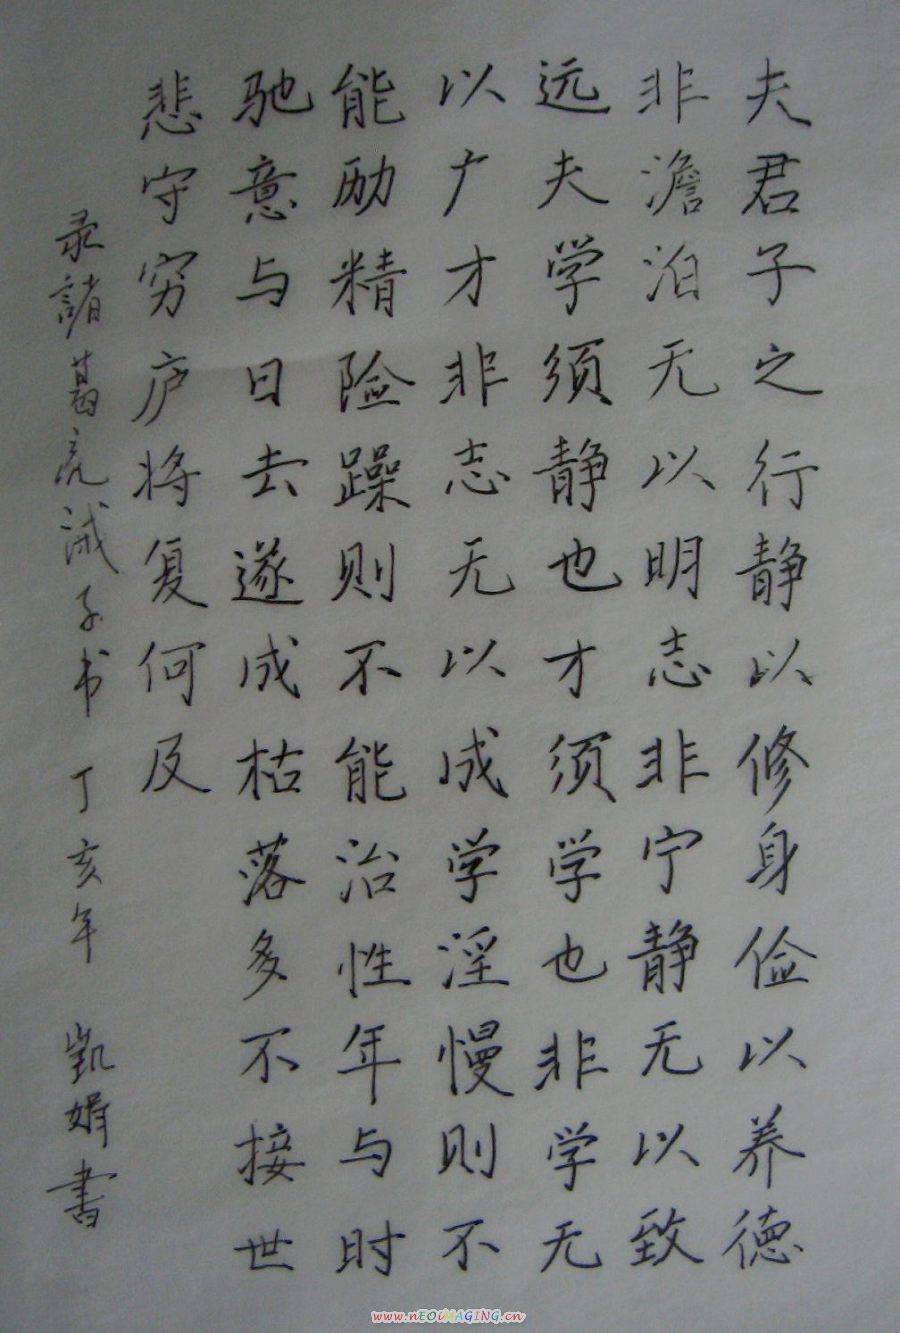 夫君子之行静以修身俭以养德
非澹泊无以明志非宁静无以致
远夫学须静也才须学也非学无
以广才非志无以成学淫慢则不
能励精险躁则不能治性年与时
驰意与日去遂成枯落多不接世
悲守穷庐将复何及
录諸葛亮诫子书 丁亥年 凱 書
www.nEOiMAGiNG.cn